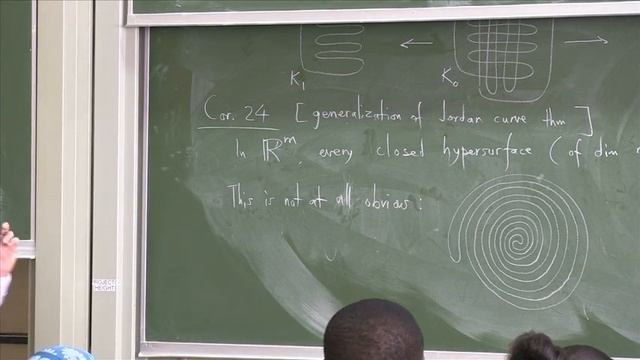 K₁
K₀
Cor. 24 [generalization of Jordan curve thm]
In ℝᵐ every closed hypersurface (of dim
This is not at all obvious:
PROJECT
HEIGHT